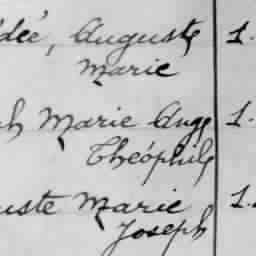 dée, Auguste 1.
Marie
ph Marie Ange 1.
Théophile
uste Marie 1.
Joseph